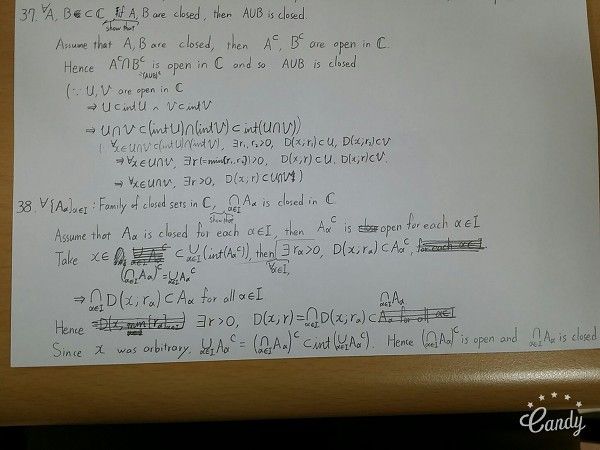 37. ∀A, B ⊂ ℂ, If A, B are closed, then A∪B is closed.
show that
Assume that A, B are closed, then Aᶜ, Bᶜ are open in ℂ.
Hence Aᶜ∩Bᶜ is open in ℂ and so A∪B is closed
=(A∪B)ᶜ
(∵ U, V are open in ℂ
⇒ U⊂int U ∧ V⊂int V
⇒ U∩V ⊂ (int U)∩(int V) ⊂ int(U∩V))
( ∀x∈U∩V⊂(int U)∩(int V), ∃r₁, r₂>0, D(x; r₁)⊂U, D(x; r₂)⊂V
⇒ ∀x∈U∩V, ∃r(=min{r₁, r₂})>0, D(x; r)⊂U, D(x; r)⊂V.
⇒ ∀x∈U∩V, ∃r>0, D(x; r)⊂U∩V)
38. ∀{Aα}α∈I : Family of closed sets in ℂ, ∩α∈I Aα is closed in ℂ
show that
Assume that Aα is closed for each α∈I, then Aαᶜ is open for each α∈I
Take x∈ ⊂ ∪α∈I (int(Aαᶜ)), then ∃rα>0, D(x, rα)⊂Aαᶜ,
(∩α∈I Aα)ᶜ = ∪α∈I Aαᶜ
∀α∈I,
⇒ ∩α∈I D(x, rα) ⊂ Aα for all α∈I
∩α∈I Aα
Hence ∃r>0, D(x, r) = ∩α∈I D(x; rα) ⊂
Since x was arbitrary, ∪α∈I Aαᶜ = (∩α∈I Aα)ᶜ ⊂ int(∪α∈I Aαᶜ). Hence (∩α∈I Aα)ᶜ is open and ∩α∈I Aα is closed
Candy